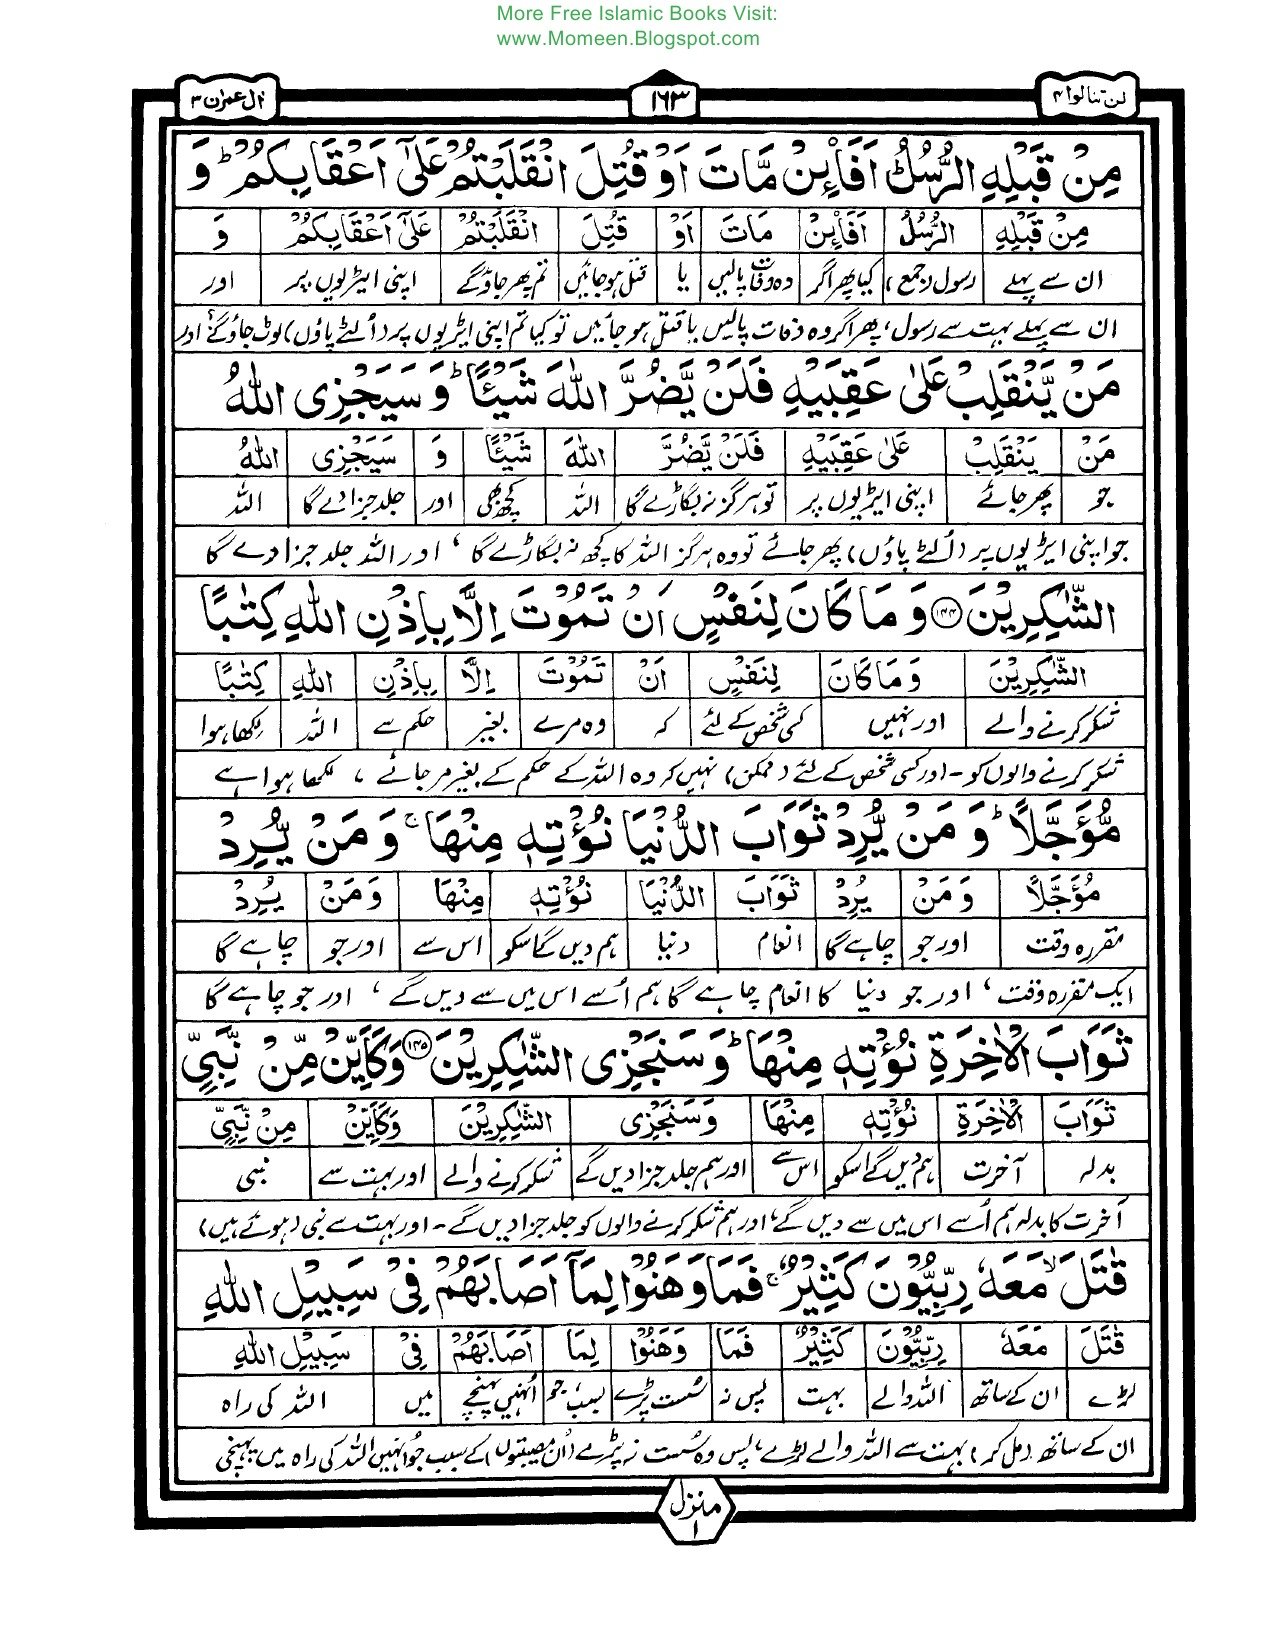 More Free Islamic Books Visit:
www.Momeen.Blogspot.com
لن تنالوا ۴
۱۶۳
اٰل عمرٰن ۳
مِنْ قَبْلِهِ الرُّسُلُ ؕ اَفَا۟ئِنْ مَّاتَ اَوْ قُتِلَ انْقَلَبْتُمْ عَلٰۤى اَعْقَابِكُمْ ؕ وَ
مِنْ قَبْلِهِ الرُّسُلُ اَفَا۟ئِنْ مَاتَ اَوْ قُتِلَ انْقَلَبْتُمْ عَلٰۤى اَعْقَابِكُمْ وَ
ان سے پہلے رسول (جمع) کیا پھر اگر وہ وفات پالیں یا قتل ہو جائیں تم پھر جاؤگے اپنی ایڑیوں پر اور
ان سے پہلے بہت سے رسول، پھر اگر وہ وفات پالیں یا قتل ہو جائیں تو کیا تم اپنی ایڑیوں پر (اُلٹے پاؤں) لوٹ جاؤگے؟ اور
مَنْ يَّنْقَلِبْ عَلٰى عَقِبَيْهِ فَلَنْ يَّضُرَّ اللّٰهَ شَيْـًٔا ؕ وَ سَيَجْزِى اللّٰهُ
مَنْ يَنْقَلِبْ عَلٰى عَقِبَيْهِ فَلَنْ يَّضُرَّ اللّٰهَ شَيْـًٔا وَ سَيَجْزِى اللّٰهُ
جو پھر جائے اپنی ایڑیوں پر تو ہرگز نہ بگاڑے گا اللہ کچھ بھی اور جلد جزا دے گا اللہ
جو اپنی ایڑیوں پر (اُلٹے پاؤں) پھر جائے تو وہ ہرگز اللہ کا کچھ نہ بگاڑے گا، اور اللہ جلد جزا دے گا
الشّٰكِرِيْنَ ۱۴۴ وَ مَا كَانَ لِنَفْسٍ اَنْ تَمُوْتَ اِلَّا بِاِذْنِ اللّٰهِ كِتٰبًا
الشّٰكِرِيْنَ وَ مَا كَانَ لِنَفْسٍ اَنْ تَمُوْتَ اِلَّا بِاِذْنِ اللّٰهِ كِتٰبًا
شکر کرنے والے اور نہیں کسی شخص کے لئے کہ وہ مرے بغیر حکم سے اللہ لکھا ہوا
شکر کرنے والوں کو - اور کسی شخص کے لئے (ممکن) نہیں کہ وہ اللہ کے حکم کے بغیر مر جائے، لکھا ہوا ہے
مُّؤَجَّلًا ؕ وَ مَنْ يُّرِدْ ثَوَابَ الدُّنْيَا نُؤْتِهٖ مِنْهَا ۚ وَ مَنْ يُّرِدْ
مُؤَجَّلًا وَ مَنْ يُرِدْ ثَوَابَ الدُّنْيَا نُؤْتِهٖ مِنْهَا وَ مَنْ يُرِدْ
مقررہ وقت اور جو چاہے گا انعام دنیا ہم دیں گے اسکو اس سے اور جو چاہے گا
ایک مقررہ وقت، اور جو دنیا کا انعام چاہے گا ہم اُسے اس میں سے دیں گے، اور جو چاہے گا
ثَوَابَ الْاٰخِرَةِ نُؤْتِهٖ مِنْهَا ؕ وَ سَنَجْزِى الشّٰكِرِيْنَ ۱۴۵ وَكَاَيِّنْ مِّنْ نَّبِىٍّ
ثَوَابَ الْاٰخِرَةِ نُؤْتِهٖ مِنْهَا وَ سَنَجْزِى الشّٰكِرِيْنَ وَكَاَيِّنْ مِنْ نَّبِىٍّ
بدلہ آخرت ہم دیں گے اسکو اس سے اور ہم جلد جزا دیں گے شکر کرنے والے اور بہت سے نبی
آخرت کا بدلہ ہم اُسے اس میں سے دیں گے، اور ہم شکر کرنے والوں کو جلد جزا دیں گے - اور بہت سے نبی (ہوئے ہیں)
قٰتَلَ ۙ مَعَهٗ رِبِّيُّوْنَ كَثِيْرٌ ۚ فَمَا وَهَنُوْا لِمَاۤ اَصَابَهُمْ فِىْ سَبِيْلِ اللّٰهِ
قٰتَلَ مَعَهٗ رِبِّيُّوْنَ كَثِيْرٌ فَمَا وَهَنُوْا لِمَا اَصَابَهُمْ فِىْ سَبِيْلِ اللّٰهِ
لڑے ان کے ساتھ اللہ والے بہت پس نہ سُست پڑے بسبب جو اُنہیں پہنچے میں اللہ کی راہ
ان کے ساتھ (مل کر) بہت سے اللہ والے لڑے، پس وہ سُست نہ پڑے (اُن مصیبتوں) کے سبب جو اُنہیں اللہ کی راہ میں پہنچی
منزل
۱